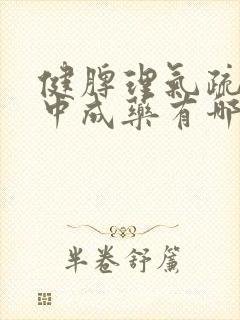 健脾理氣疏
中成藥有哪
半卷舒簾